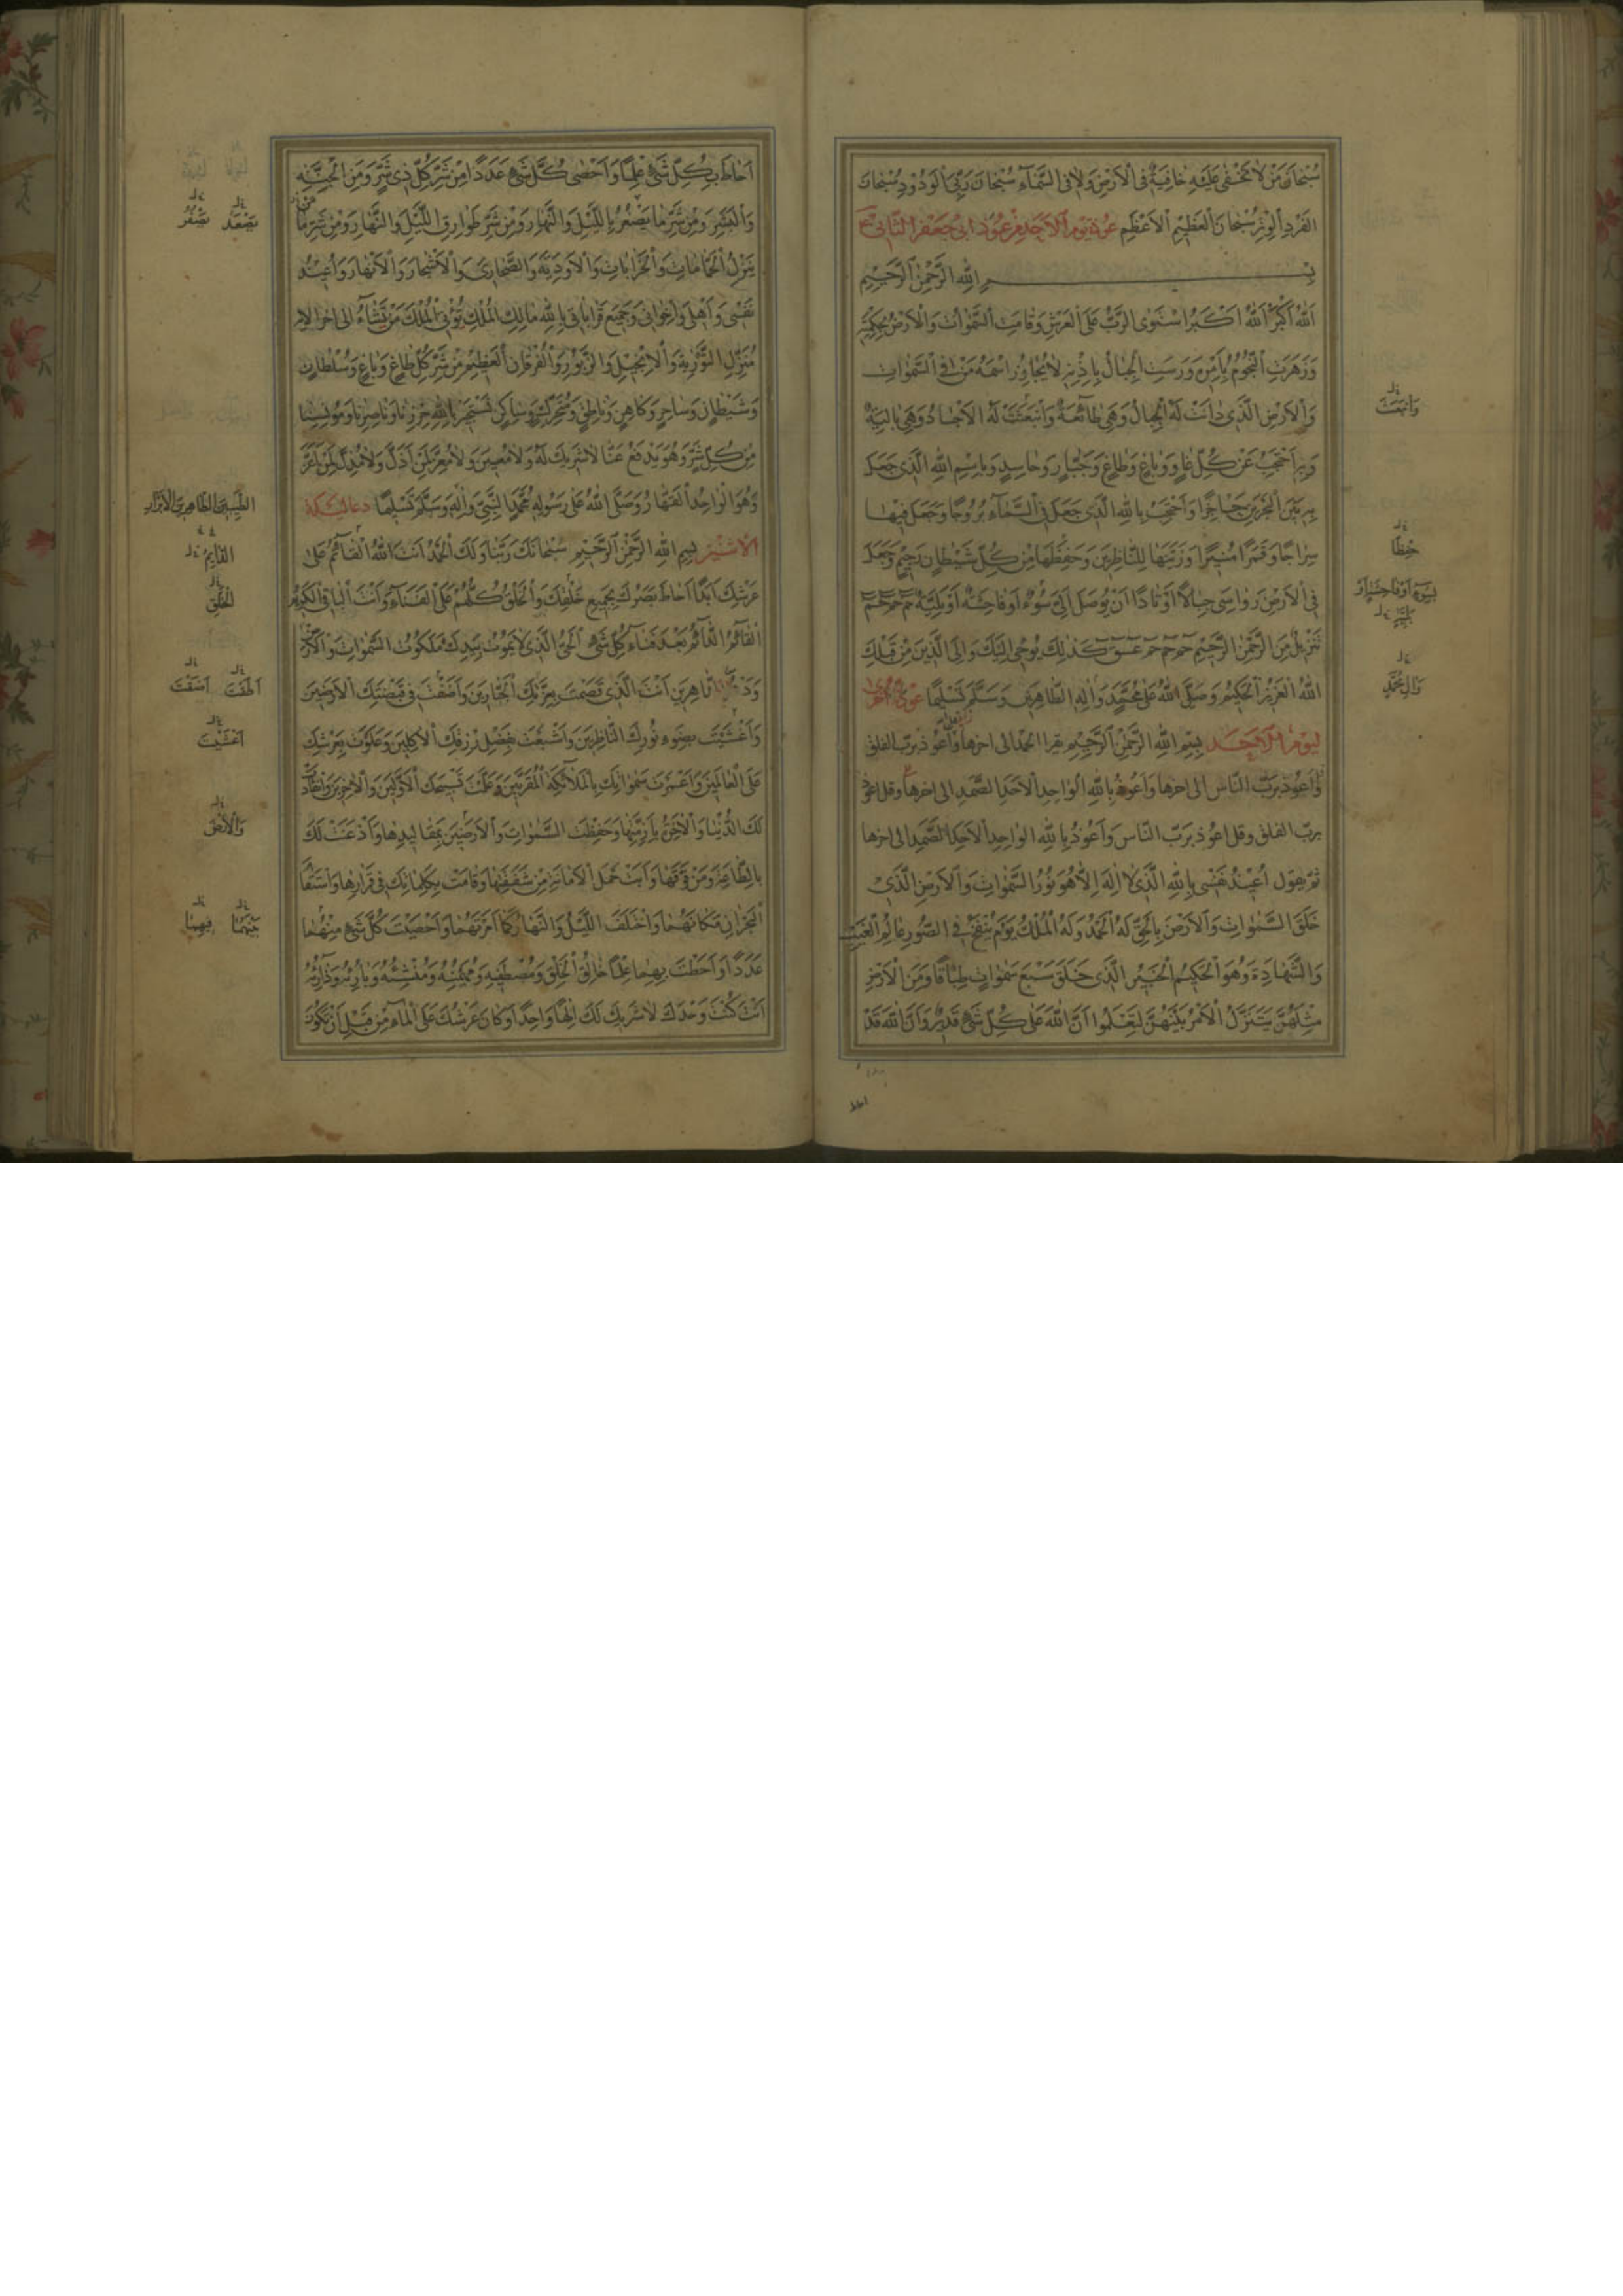 سُبْحَانَ مَنْ لَا تَخْفٰى عَلَيْهِ خَافِيَةٌ فِى الْاَرْضِ وَلَا فِى السَّمَآءِ سُبْحَانَ رَبِّىَ الْوَدُوْدِ سُبْحَانَ
الْفَرْدِ الْوِتْرِ سُبْحَانَ الْعَظِيْمِ الْاَعْظَمِ عوذة يوم الاحد من عوذ ابى جعفر الثانى ع
بِسْمِ اللهِ الرَّحْمٰنِ الرَّحِيْمِ
اَللهُ اَكْبَرُ اَللهُ اَكْبَرُ اسْتَوَى الرَّبُّ عَلَى الْعَرْشِ وَقَامَتِ السَّمٰوَاتُ وَالْاَرْضُ بِحِكْمَتِهِ
وَزَهَرَتِ النُّجُوْمُ بِاَمْرِهِ وَرَسَتِ الْجِبَالُ بِاِذْنِهِ لَا يُجَاوِزُ اسْمَهُ مَنْ فِى السَّمٰوَاتِ
وَالْاَرْضِ الَّذِى دَانَتْ لَهُ الْجِبَالُ وَهِىَ طَائِعَةٌ وَانْبَعَثَتْ لَهُ الْاَجْسَادُ وَهِىَ بَالِيَةٌ
وَبِهِ اَحْتَجِبُ عَنْ كُلِّ غَاوٍ وَبَاغٍ وَطَاغٍ وَجَبَّارٍ وَحَاسِدٍ وَبِاسْمِ اللهِ الَّذِى جَعَلَ
بِهِ بَيْنَ الْبَحْرَيْنِ حَاجِزًا وَاَحْتَجِبُ بِاللهِ الَّذِى جَعَلَ فِى السَّمَآءِ بُرُوْجًا وَجَعَلَ فِيْهَا
سِرَاجًا وَقَمَرًا مُنِيْرًا وَزَيَّنَهَا لِلنَّاظِرِيْنَ وَحَفِظَهَا مِنْ كُلِّ شَيْطَانٍ رَجِيْمٍ وَجَعَلَ
فِى الْاَرْضِ رَوَاسِىَ جِبَالًا اَوْتَادًا اَنْ يُوْصَلَ اِلَىَّ سُوْءٌ اَوْ فَاحِشَةٌ اَوْ بَلِيَّةٌ حٰمٓ حٰمٓ حٰمٓ
تَنْزِيْلٌ مِنَ الرَّحْمٰنِ الرَّحِيْمِ حٰمٓ حٰمٓ حٰمٓ عٓسٓقٓ كَذٰلِكَ يُوْحٰى اِلَيْكَ وَاِلَى الَّذِيْنَ مِنْ قَبْلِكَ
اللهُ الْعَزِيْزُ الْحَكِيْمُ وَصَلَّى اللهُ عَلٰى مُحَمَّدٍ وَاٰلِهِ الطَّاهِرِيْنَ وَسَلَّمَ تَسْلِيْمًا عوذة اخرى
ليوم الاحد بِسْمِ اللهِ الرَّحْمٰنِ الرَّحِيْمِ يقرا الحمد الى اخرها وَاَعُوْذُ بِرَبِّ الفلق
وَاَعُوْذُ بِرَبِّ النَّاسِ الى اخرها وَاَعُوْذُ بِاللهِ الْوَاحِدِ الْاَحَدِ الصَّمَدِ الى اخرها وقل اعوذ
بربّ الفلق وقل اعوذ بربّ النّاس وَاَعُوْذُ بِاللهِ الْوَاحِدِ الْاَحَدِ الصَّمَدِ الى اخرها
ثم يقول اُعِيْذُ نَفْسِى بِاللهِ الَّذِىْ لَا اِلٰهَ اِلَّا هُوَ نُوْرُ السَّمٰوَاتِ وَالْاَرْضِ الَّذِىْ
خَلَقَ السَّمٰوَاتِ وَالْاَرْضَ بِالْحَقِّ لَهُ الْحَمْدُ وَلَهُ الْمُلْكُ يَوْمَ يُنْفَخُ فِى الصُّوْرِ عَالِمُ الْغَيْبِ
وَالشَّهَادَةِ وَهُوَ الْحَكِيْمُ الْخَبِيْرُ الَّذِى خَلَقَ سَبْعَ سَمٰوَاتٍ طِبَاقًا وَمِنَ الْاَرْضِ
مِثْلَهُنَّ يَتَنَزَّلُ الْاَمْرُ بَيْنَهُنَّ لِتَعْلَمُوْا اَنَّ اللهَ عَلٰى كُلِّ شَىْءٍ قَدِيْرٌ وَاَنَّ اللهَ قَدْ
احاط
وَانْبَعَثَ
حِفْظًا
وَاٰلِ مُحَمَّدٍ
اَحَاطَ بِكُلِّ شَىْءٍ عِلْمًا وَاَحْصٰى كُلَّ شَىْءٍ عَدَدًا مِنْ شَرِّ كُلِّ ذِى شَرٍّ وَمِنَ الْجِنَّةِ
وَالْبَشَرِ وَمِنْ شَرِّ مَا يَصْفُرُ بِاللَّيْلِ وَالنَّهَارِ وَمِنْ شَرِّ طَوَارِقِ اللَّيْلِ وَالنَّهَارِ وَمِنْ شَرِّ مَا
يَنْزِلُ الْحَمَّامَاتِ وَالْخَرَابَاتِ وَالْاَوْدِيَةَ وَالصَّحَارِىَ وَالْاَشْجَارَ وَالْاَنْهَارَ وَاُعِيْذُ
نَفْسِى وَاَهْلِى وَاِخْوَانِى وَجَمِيْعَ قَرَابَاتِى بِاللهِ مَالِكِ الْمُلْكِ تُؤْتِى الْمُلْكَ مَنْ تَشَآءُ الى اخر الاية
مُنَزِّلِ التَّوْرٰيةِ وَالْاِنْجِيْلِ وَالزَّبُوْرِ وَالْفُرْقَانِ الْعَظِيْمِ مِنْ شَرِّ كُلِّ طَاغٍ وَبَاغٍ وَسُلْطَانٍ
وَشَيْطَانٍ وَسَاحِرٍ وَكَاهِنٍ وَنَاطِقٍ وَمُتَحَرِّكٍ وَسَاكِنٍ نَسْتَجِيْرُ بِاللهِ حِرْزِنَا وَنَاصِرِنَا وَمُوْنِسِنَا
مِنْ كُلِّ شَرٍّ وَهُوَ يَدْفَعُ عَنَّا لَا شَرِيْكَ لَهُ وَلَا مُعِيْنَ وَلَا مُعِزَّ لِمَنْ اَذَلَّ وَلَا مُذِلَّ لِمَنْ اَعَزَّ
وَهُوَ الْوَاحِدُ الْقَهَّارُ وَصَلَّى اللهُ عَلٰى رَسُوْلِهِ مُحَمَّدٍ النَّبِىِّ وَاٰلِهِ وَسَلَّمَ تَسْلِيْمًا دعا ليلة
الاثنين بِسْمِ اللهِ الرَّحْمٰنِ الرَّحِيْمِ سُبْحَانَكَ رَبَّنَا وَلَكَ الْحَمْدُ اَنْتَ اللهُ الْقَائِمُ عَلٰى
عَرْشِكَ اَبَدًا اَحَاطَ بَصَرُكَ بِجَمِيْعِ خَلْقِكَ وَالْخَلْقُ كُلُّهُمْ عَلَى الْفَنَآءِ وَاَنْتَ الْبَاقِى الْكَرِيْمُ
الْقَائِمُ الدَّائِمُ بَعْدَ فَنَآءِ كُلِّ شَىْءٍ الْحَىُّ الَّذِى لَا يَمُوْتُ بِيَدِكَ مَلَكُوْتُ السَّمٰوَاتِ وَالْاَرْضِ
اَنْتَ الَّذِى قَصَمْتَ بِعِزَّتِكَ الْجَبَّارِيْنَ وَاَضَفْتَ فِى قَبْضَتِكَ الْاَرَضِيْنَ
وَاَغْشَيْتَ بِضَوْءِ نُوْرِكَ النَّاظِرِيْنَ وَاَشْبَعْتَ بِفَضْلِ رِزْقِكَ الْاٰكِلِيْنَ وَعَلَوْتَ بِعَرْشِكَ
عَلَى الْعَالَمِيْنَ وَاَعْمَرْتَ سَمٰوَاتِكَ بِالْمَلَائِكَةِ الْمُقَرَّبِيْنَ وَعَلَّمْتَ تَسْبِيْحَكَ الْاَوَّلِيْنَ وَالْاٰخِرِيْنَ وَانْقَادَتْ
لَكَ الدُّنْيَا وَالْاٰخِرَةُ بِاَزِمَّتِهَا وَحَفِظْتَ السَّمٰوَاتِ وَالْاَرَضِيْنَ بِمَقَالِيْدِهَا وَاَذْعَنَتْ لَكَ
بِالطَّاعَةِ وَمَنْ فَوْقَهَا وَاَبَتْ حَمْلَ الْاَمَانَةِ مِنْ شَفَقَتِهَا وَقَامَتْ بِكَلِمَاتِكَ فِى قَرَارِهَا وَاسْتَقَامَ
الْبَحْرَانِ مَكَانَهُمَا وَاخْتَلَفَ اللَّيْلُ وَالنَّهَارُ كَمَا اَمَرْتَهُمَا وَاَحْصَيْتَ كُلَّ شَىْءٍ مِنْهُمَا
عَدَدًا وَاَحَطْتَ بِهِمَا عِلْمًا خَالِقُ الْخَلْقِ وَمُصْطَفِيْهِ وَمُهَيْمِنُهُ وَمُنْشِئُهُ وَبَارِئُهُ وَذَارِئُهُ
اَنْتَ كُنْتَ وَحْدَكَ لَا شَرِيْكَ لَكَ اِلٰهًا وَاحِدًا وَكَانَ عَرْشُكَ عَلَى الْمَآءِ مِنْ قَبْلِ اَنْ تَكُوْنَ
الطَّيِّبِيْنَ الطَّاهِرِيْنَ الْاَبْرَارِ
الْقَايِمُ
الْخَلْقِ
اَغْشَيْتَ